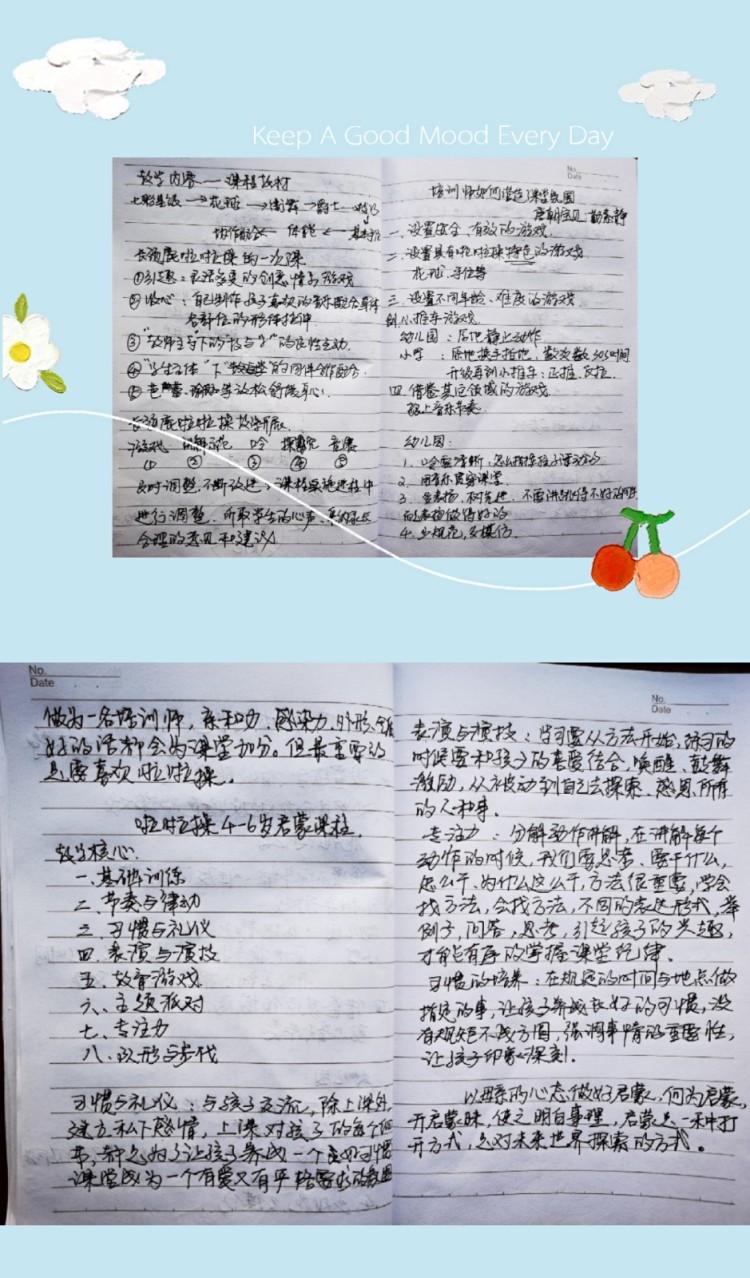 Keep A Good Mood Every Day
教学内容——课程教材
→花球→街舞→爵士→
协作配合←体能←
长颈鹿啦啦操的一次课
①引趣：丰富多变的创意情景游戏
②收心：自己制作孩子喜欢的音乐配合身体
各部位的形体控制
③"教师主导"下的"教与学"的良性互动.
④"学生主体"下的同伴合作配合.
⑤等放松舒缓身心.
长颈鹿啦啦操教学开展.
游戏 讲解示范 
① ② ③ ④ ⑤
及时调整,不断改进,课程实施进程中
进行调整,听取学生的心声,采纳家长
合理的意见和建议
No.
Date
培训师如何营造课堂氛围
一、设置安全、有效的游戏.
二、设置具有啦啦操特色的游戏
花球、手位等
三、设置不同年龄、难度的游戏
例:小推车游戏.
幼儿园：原地静止动作
小学：原地换手拍地,数次数,30S时间
升级再到小推车:正推、反推.
四、借鉴其它领域的游戏.
跟上音乐节奏.
幼儿园：
1、口令要清晰,
2、用音乐贯穿课堂.
3、多表扬、树先进、不要讲
而表扬做得好的
4、少规范,多模仿.
No.
Date
做为一名培训师，亲和力、感染力、外形、
好的话都会为课堂加分。但最重要的
是要喜欢啦啦操.
啦啦操4-6岁启蒙课程.
教学核心.
一、基础训练
二、节奏与律动
三、习惯与礼仪
四、表演与演技
五、教育游戏
六、主题派对
七、专注力
八、队形与步代
习惯与礼仪：与孩子交流，除上课外,
建立私下感情，上课对孩子的每个
都是为了让孩子养成一个良好习惯
课堂成为一个有爱又有严格要求的
No.
Date
表演与演技：学习要从方法开始,练习的
时候要和孩子的喜爱结合,唤醒、鼓舞
激励，从被动到自己去探索、感恩所有
的人和事.
专注力：分解动作讲解，在讲解每个
动作的时候，我们要思考、要干什么，
怎么干、为什么这么干,方法很重要,学会
找方法,会找方法,不同的表达形式,举
例子,问答,思考,引起孩子的兴趣,
才能有序的掌握课堂纪律.
习惯的培养：在规定的时间与地点做
指定的事,让孩子养成良好的习惯,没
有规矩不成方圆,强调事情的重要性,
让孩子印象深刻.
以母亲的心态做好启蒙，何为启蒙,
开启蒙昧，使之明白事理，启蒙是一种打
开方式，是对未来世界探索的方式。